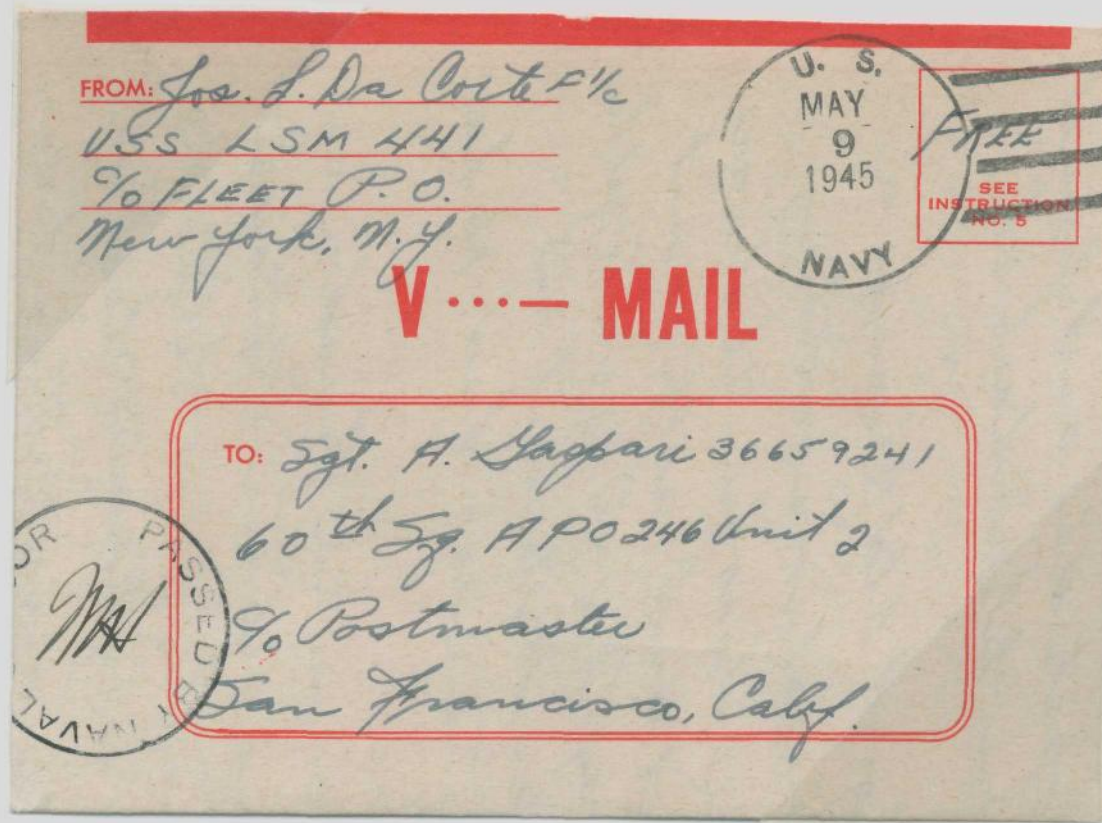 FROM: Jos. L. Da Corte F 1/c
USS LSM 441
c/o FLEET P.O.
New York, N.Y.
U. S.
MAY
9
1945
NAVY
FREE
SEE
INSTRUCTION
NO. 5
V ···— MAIL
TO: Sgt. A. Gaspari 36659241
60th Sq. APO 246 Unit 2
c/o Postmaster
San Francisco, Calif.
PASSED BY NAVAL